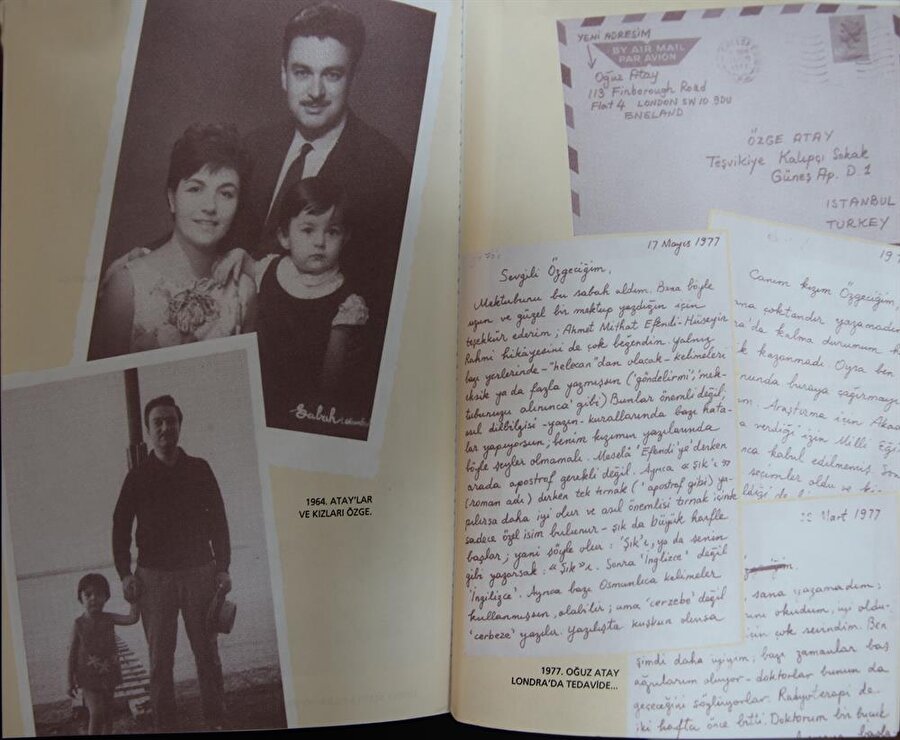 Sabah
1964. ATAY'LAR
VE KIZLARI ÖZGE.
YENİ ADRESİM
BY AIR MAIL
PAR AVION
Oğuz Atay
113 Finborough Road
Flat 4 LONDON SW 10 9DU
ENELAND
ÖZGE ATAY
Teşvikiye Kalıpçı Sokak
Güneş Ap. D. 1
ISTANBUL
TURKEY
17 Mayıs 1977
Sevgili Özgeciğim,
Mektubunu bu sabah aldım. Bana böyle
uzun ve güzel bir mektup yazdığın için
teşekkür ederim; Ahmet Mithat Efendi-Hüseyin
Rahmi hikâyesini de çok beğendim. yalnız
bazı yerlerinde-"helecan"dan olacak-kelimeleri
eksik ya da fazla yazmışsın ('göndelirmi','mek-
tuburugu alınınca' gibi) Bunlar önemli değil;
asıl dilbilgisi-yazım-kurallarında bazı hata-
lar yapıyorsun; benim kızımın yazılarında
böyle şeyler olmamalı. Meselâ 'Efendi'ye' derken
arada apostrof gerekli değil. Ayrıca «Şık'ı»
(roman adı) derken tek tırnak (' apostrof gibi) ya-
pılırsa daha iyi olur ve asıl önemlisi tırnak içinde
sadece özel isim bulunur-Şık da büyük harfle
başlar; yani şöyle olur: 'Şık'ı, ya da senin
gibi yazarsak: «Şık»ı. Sonra 'İnglizce' değil
'İngilizce'. Ayrıca bazı Osmanlıca kelimeler
kullanmışsın, olabilir; ama 'cerzebe' değil
'cerbeze' yazılır. Yazılışta kuşkun olursa
197
Canım kızım Özgeciğim,
çoktandır yazamadım
'da kalma durumum
kazanmadı. Oysa ben
buraya çağırmayı
Araştırma için Akad
verdiği için Milli Eği
nca kabul edilmemiş. Son
seçimler oldu ve
Mart 1977
sana yazamadım;
okudum, iyi oldu-
için çok sevindim. Ben
şimdi daha iyiyim; bazı zamanlar baş
ağrılarım oluyor-doktorlar bunun da
geçeceğini söylüyorlar. Radyoterapi de
iki hafta önce bitti. Doktorum bir buçuk
1977. OĞUZ ATAY
LONDRA'DA TEDAVİDE...